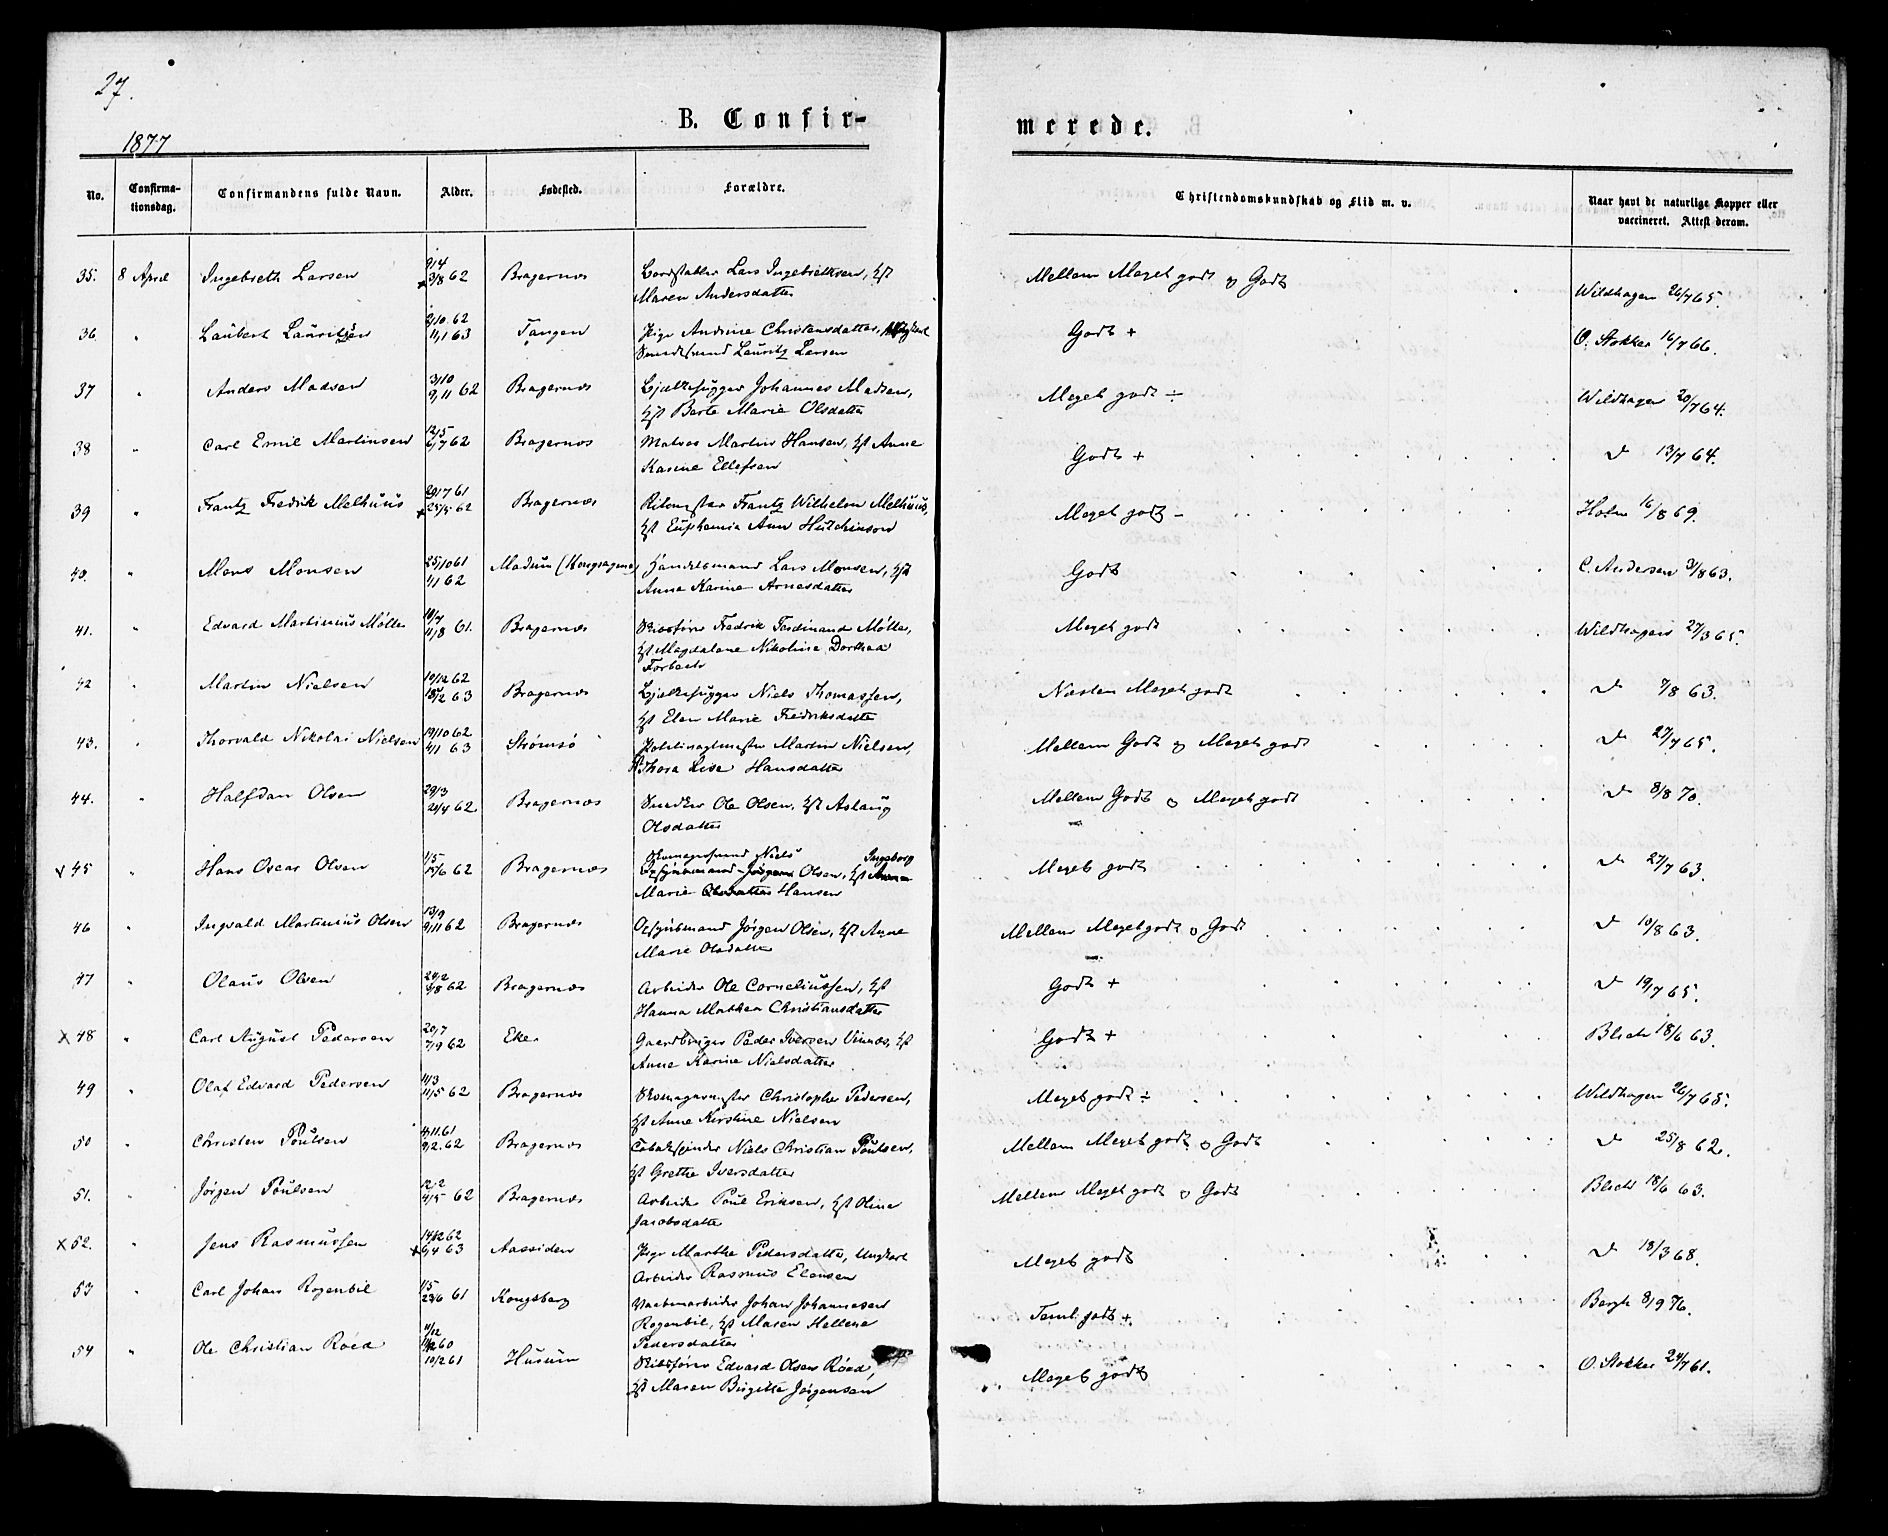 27.
1877
B. Confir-
merede.
No.
Confirma-
tionsdag.
Confirmandens fulde Navn.
Alder.
Fødested.
Forældre.
Christendomskundskab og Flid m. v.
Naar havt de naturlige Kopper eller
vaccineret. Attest derom.
35. 8 April Ingebreth Larsen 9/4 3/8 62 Bragernæs Bordstabler Lars Ingebrethsen, Hst
Maren Andersdatter
Mellem Meget godt og Godt Wildhagen 26/7 65.
36. " Laubert Lauritzen 2/10 62 11/1 63 Tangen Pige Andrine Christensdatter, Ungkarl
Lauritz Larsen
Godt + O. Stokker 16/7 66.
37 " Anders Madsen 3/10 9/11 62 Bragernæs Bjælkehugger Johannes Madsen,
Hst Berte Marie Olsdatter
Meget godt ÷ Wildhagen 20/7 64.
38 " Carl Emil Martinsen 12/5 6/7 62 Bragernæs Matros Martin Hansen, Hst Anne
Karine Ellefsen
Godt + d 13/7 64.
39 " Frantz Fredrik Melhuus 29/7 61 25/5 62 Bragernæs Frantz Wilhelm Melhuus,
Hst Euphemia Ann Hutchinson
Meget godt - Holm 16/8 69.
40. " Mons Monsen 25/10 61 1/1 62 Modum (Kongsagene) Handelsmand Lars Monsen, Hst
Anne Karine Arnesdatter
Godt C. Andersen 3/8 63.
41. " Edvard Martinius Møller 18/7 11/8 61. Bragernæs Skibsfører Fredrik Ferdinand Møller,
Hst Magdalene Nikoline Dorthea
Forbech
Meget godt Wildhagen 27/3 65.
42 " Martin Nielsen 10/12 62 18/2 63 Bragernæs Bjælkehugger Niels Thomassen,
Hst Elen Marie Fredriksdatter
Næsten Meget godt d 7/8 63.
43. " Thorvald Nikolai Nielsen 19/10 62 4/1 63 Strømsø Martin Nielsen,
Hst Thora Lise Hansdatter
Mellem Godt og Meget godt d 27/7 65.
44. " Halfdan Olsen 29/3 21/4 62 Bragernæs Snedker Ole Olsen, Hst Aslaug
Olsdatter
Mellem Godt og Meget godt d 8/8 70.
x 45 " Hans Oscar Olsen 1/5 15/6 62 Bragernæs Niels Ingeborg
Opsynsmand Jørgen Olsen, Hst Anne
Marie Olsdatter Hansen
Meget godt d 27/7 63.
46 " Ingvald Martinius Olsen 13/9 9/11 62 Bragernæs Opsynsmand Jørgen Olsen, Hst Anne
Marie Olsdatter
Mellem Meget godt og Godt d 10/8 63.
47 " Olaus Olsen 24/2 3/8 62 Bragernæs Arbeider Ole Corneliussen, Hst
Hanna Mathea Christiansdatter
Godt + d 19/7 65.
x 48 " Carl August Pedersen 20/7 7/9 62 Eker Gaardbruger Peder Iversen Vinnæs, Hst
Anne Karine Nielsdatter
Godt + Blich 18/6 63.
49 " Olaf Edvard Pedersen 11/3 11/5 62 Bragernæs Skomagermester Christopher Pedersen,
Hst Anne Kirstine Nielsen
Meget godt ÷ Wildhagen 26/7 65.
50 " Christen Poulsen 4/11 61 9/2 62 Bragernæs Tobakspinder Niels Christian Poulsen,
Hst Grethe Iversdatter
Mellem Meget godt og Godt d 25/8 62.
51. " Jørgen Poulsen 12/2 4/5 62 Bragernæs Arbeider Poul Eriksen, Hst Oline
Jacobsdatter
Mellem Meget godt og Godt Blich 18/6 63.
x 52. " Jens Rasmussen 14/12 62 x 6/4 63 Aassiden Pige Marthe Pedersdatter, Ungkarl
Arbeider Rasmus Elensen
Meget godt d 18/3 68.
53 " Carl Johan Rogenbil 1/5 23/6 61 Kongsberg Vaabenarbeider Johan Johannesen
Rogenbil, Hst Maren Hellene
Pedersdatter
Teml. godt + Bergh 8/9 76.
54 " Ole Christian Röed 11/12 60 10/2 61 Husum Skibsfører Edvard Olsen Röed,
Hst Maren Birgitte Jörgensen
Meget godt O. Stokker 24/7 61.